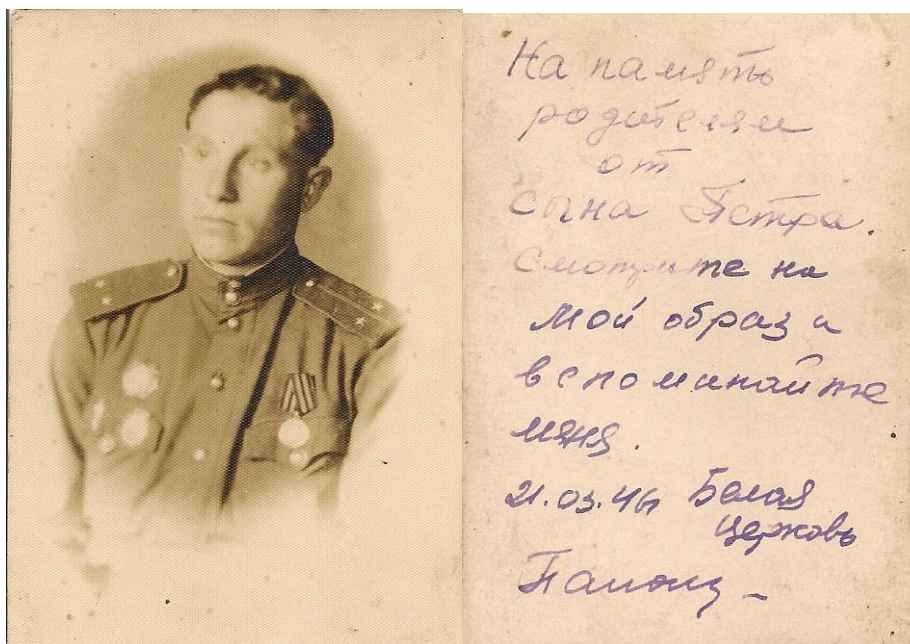 На память
родителям
от
сына Петра.
Смотрите на
мой образ и
вспоминайте
мяня.
21.03.46 Белая
Церковь